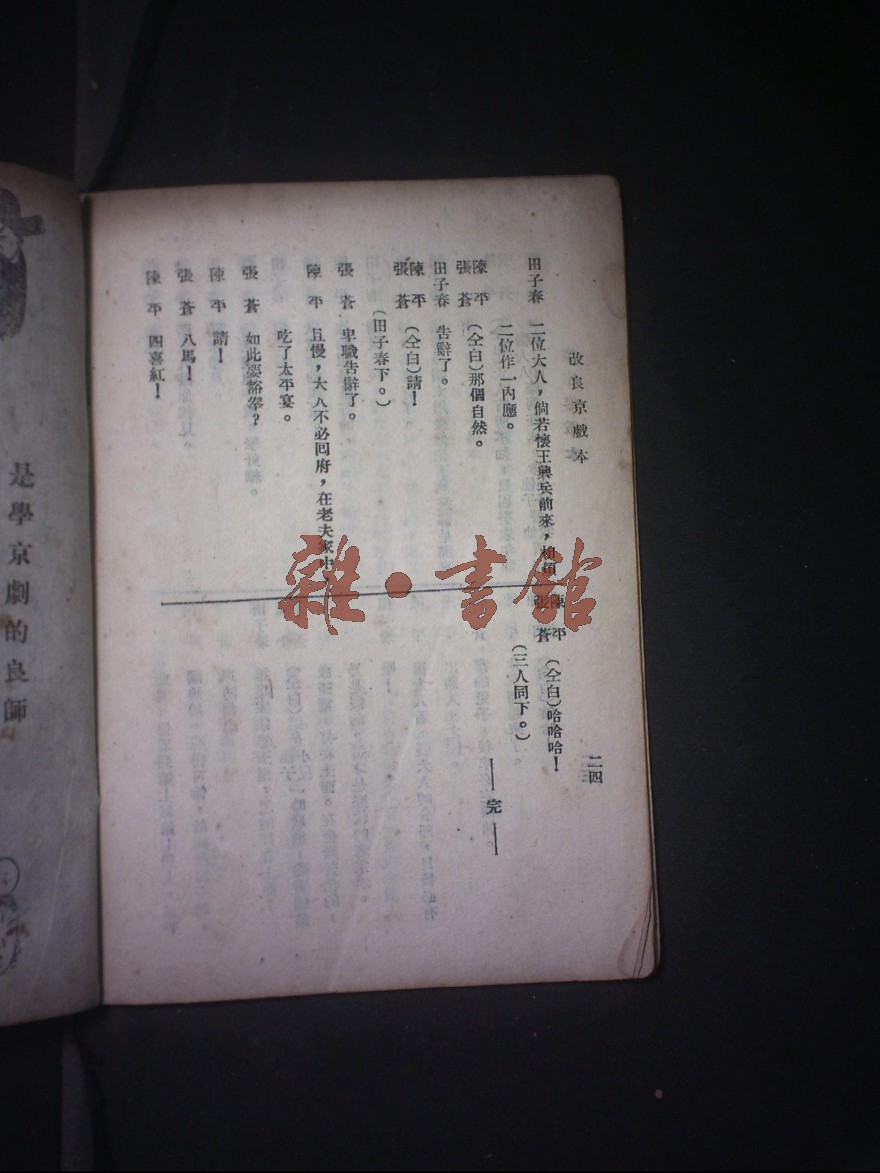 改良京戲本
二四
田子春　二位大人，倘若懷王興兵前來，煩煩
二位作一內應。
陳平
張蒼　(仝白)那個自然。
田子春　告辭了。
陳平
張蒼　(仝白)請！
(田子春下。)
張蒼　卑職告辭了。
陳平　且慢，大人不必囘府，在老夫家中，
吃了太平宴。
張蒼　如此要豁拳？
陳平　請！
張蒼　八馬！
陳平　四喜紅！
陳平
張蒼　(仝白)哈哈哈！
(三人同下。)
完
是學京劇的良師
雜·書館